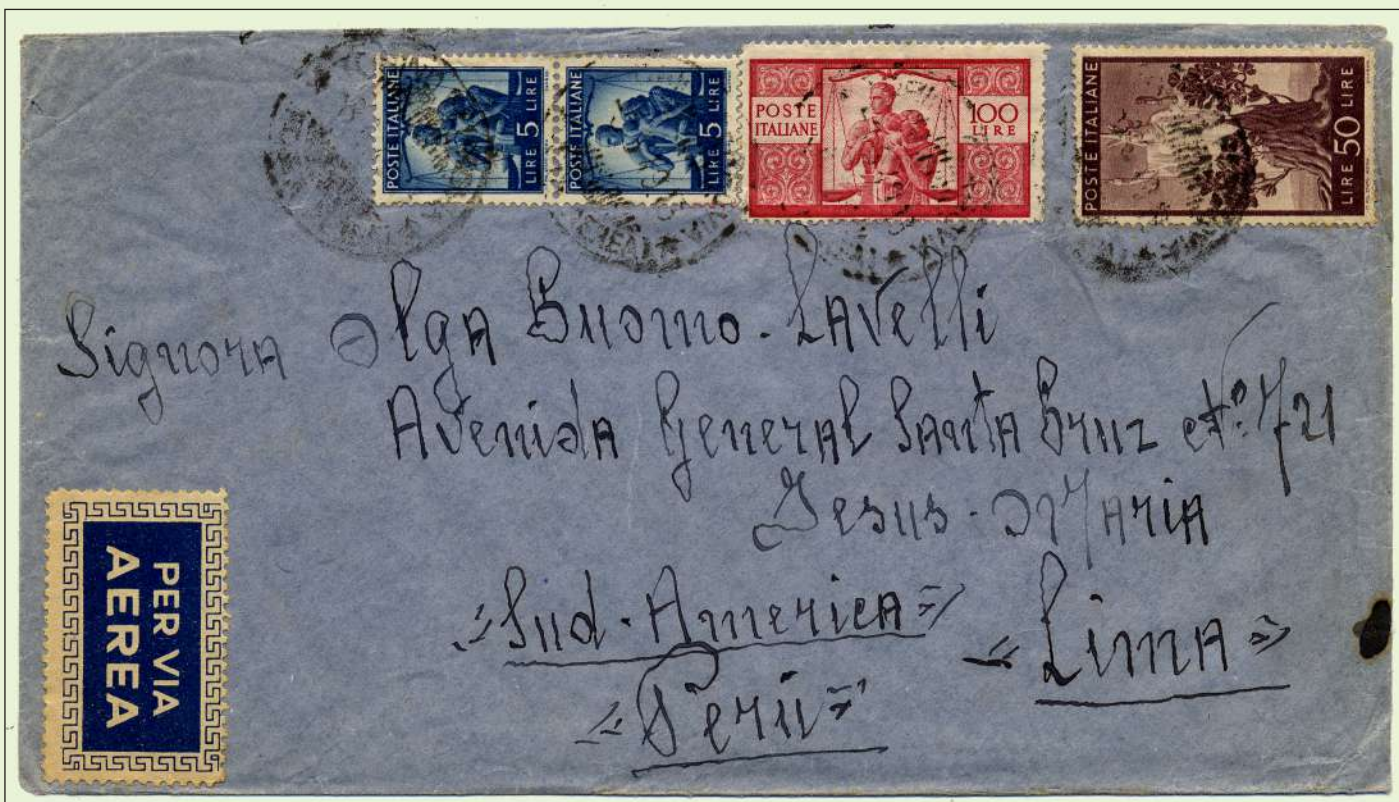 POSTE ITALIANE
LIRE 5
POSTE ITALIANE
LIRE 5
POSTE
ITALIANE
100
LIRE
POSTE ITALIANE
LIRE 50 LIRE
Signora Olga Buomo-Lavelli
Avenida General Santa Cruz Nº 721
Jesus-Maria
=Sud-America=
=Lima=
=Perù=
PER VIA
AEREA